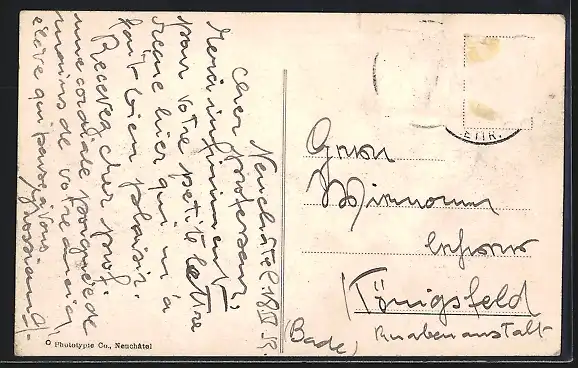 Neuchâtel 18 IV
Cher professeur,
Merci infiniment
pour votre petite lettre
reçue hier qui m'a
fait bien plaisir.
Recevez cher prof.
une cordiale poignée de
mains de votre ancien
élève qui pense à vous.
Herrn
Lehrer
Königsfeld
Knabenanstalt
(Bade)
© Phototypie Co., Neuchâtel